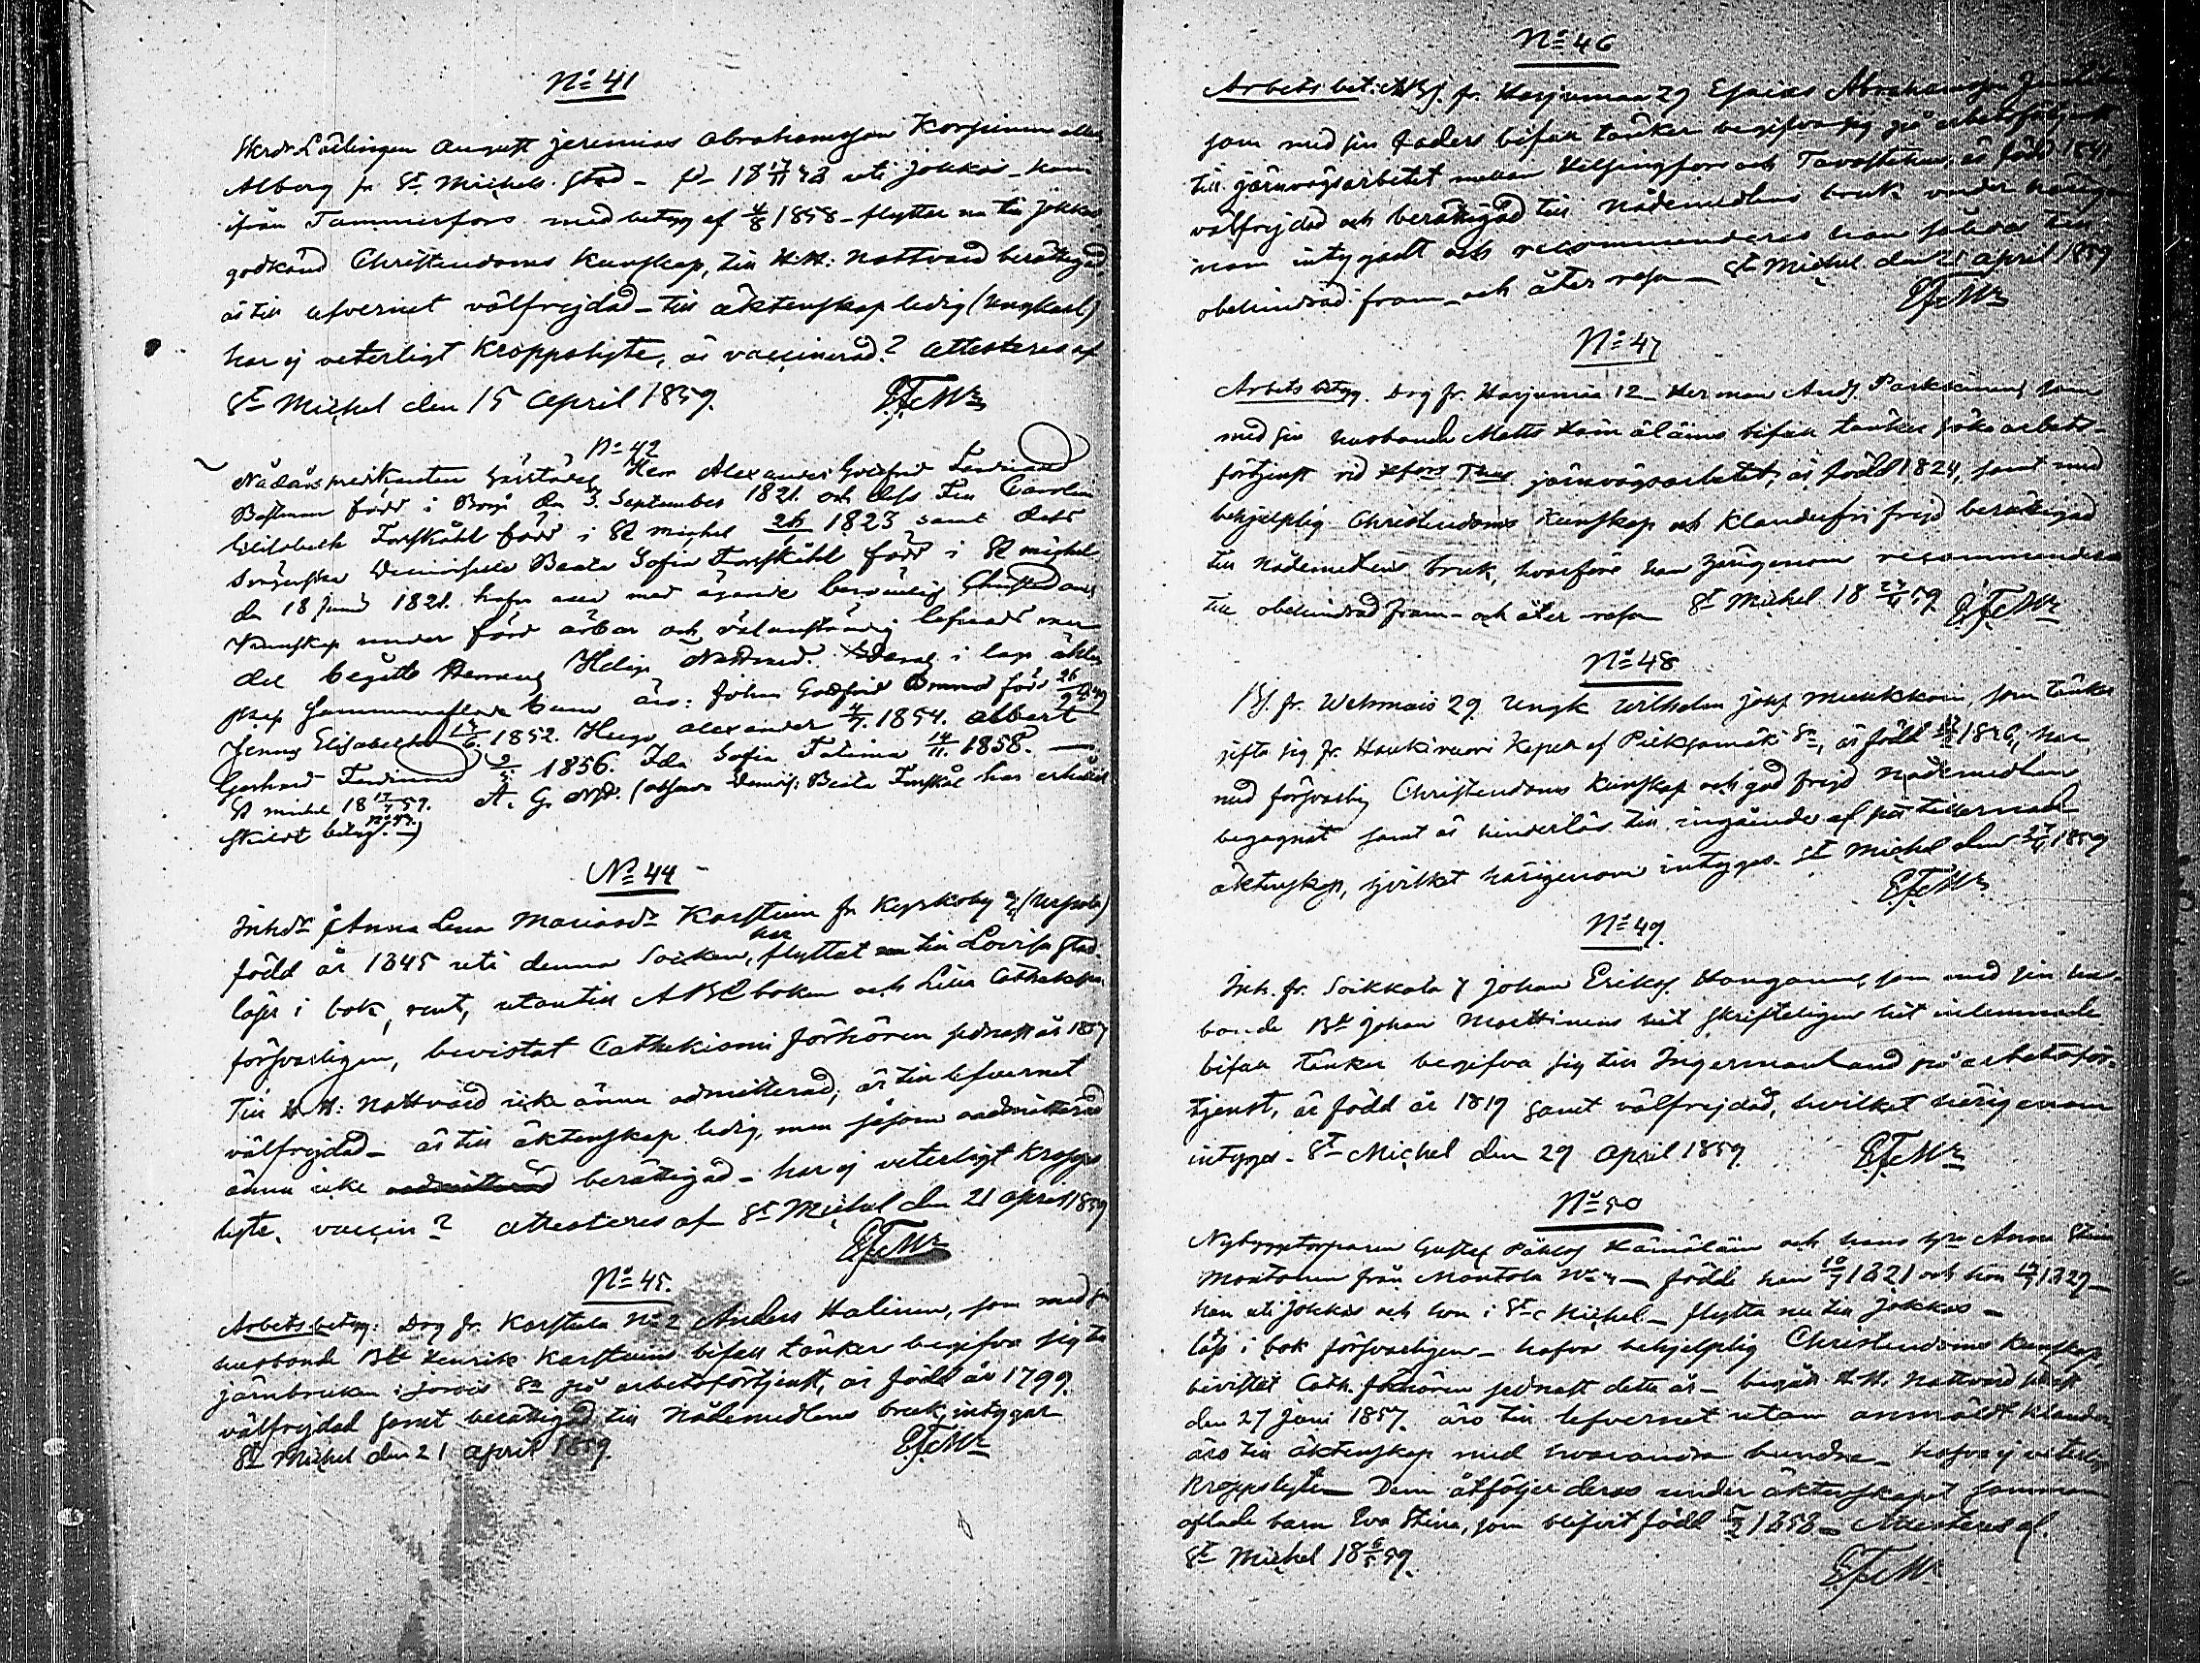 No 41
Skrdr Lärlingen August Jeremias Abrahamsson Korpinen eller
Alberg fr St Michels stad - f. 18 17/11 43 uti Jokkas - kom
ifrån Tammerfors med betyg af 4/8 1858 - flyttar nu till Jokkas
godkänd Christendoms kunskap, till H.H. Nattvard berättigad
är till lefvernet välfrejdad - till äktenskap ledig (ungkarl)
har ej veterligt kroppslyte, är vaccinerad? Attesteres af
St Michel den 15 April 1859.
No 42
Nådårspredikanten Herr Alexander Gottfrid Ferdinand
Bostman född i Borgå den 3. September 1821. och dess Fru Carolina
Elisabeth Forskåhl född i St Michel 1823 samt dess
Demoiselle Beata Sofia Forskåhl född i St Michel
den 18 Juni 1821. hafva med ägande berömlig Christendoms
kunskap under förd ärbar och välanständig lefnad
del begått Herrans Heliga Nattvard. i laga äkten-
skap sammanaflade barn äro: Johan Gottfrid född 26
Jenny Elisabeth 1852. Hugo Alexander 4/7. 1854. Albert
Gerhard Ferdinand 1856. Ida Sofia 14/11. 1858. —
St Michel 18 59. A. G. (Demois: Beata Forskål har erhållit
skildt betyg. —)
No 44
Inhdr Anna Lena Mariasdr Karstinen fr Kyrkoby (Urpola)
född år 1845 uti denna Socken, har flyttat till Lovisa stad.
läser i bok rent, utantill ABC boken och Lilla Cathekesen
försvarligen, bevistat Cathekismi förhören sednast år 1857
till H.H. Nattvard icke ännu admitterad, är till lefvernet
välfrejdad - är till äktenskap ledig, men såsom oadmitterad
ännu icke berättigad - har ej veterligt kropps
lyte, vaccin? Attesteres af St Michel den 21 April 1859
No 45.
Arbets betyg: Drg fr. Karstula No 2 Anders Halinen, som med sin
husbonde Bd Henrik Karstinens bifall tänker begifva sig till
järnbruken i Jorois Sn på arbetsförtjenst, är född år 1799.
välfrejdad samt berättigad till Nådemedlens bruk, intygar
St Michel den 21 April 1859
No 46
Arbets bet: fr. Harjumaa 29 Esaias Abrahamsson
som med sin Faders bifall tänker begifva sig på arbetsförtjenst
till järnvägsarbetet mellan Helsingfors och Tavastehus, är född 1841
välfrejdad och berättigad till nådemedlens bruk, varder härige-
nom intygadt och recommenderes han såleds till
obehindrad fram- och åter resa — St Michel den 21 April 1859
No 47
Arbets betyg. Drg fr. Harjumaa 12 Herman Andss. Parkkinen, som
med sin husbonde Matts Hämäläins bifall tänker söka arbets-
förtjenst vid Hfors Thus järnvägsarbetet, är född 1824, samt med
behjelplig Christendoms kunskap och klanderfri frejd berättigad
till Nådemedlens bruk, hvarföre han härigenom recommenderas
till obehindrad fram- och åter resa St Michel 18 59
No 48
fr. Wehmais 29 Ungk Wilhelm Johs Muukkoin, som tänker
gifta sig fr. Haukivuori Kapell af Pieksämäki Sn, är född 1826, har
med försvarlig Christendoms kunskap och god frejd Nådemedlen
begagnat samt är hinderlös till ingående af påtillernadt
äktenskap, hvilket härigenom intyges. St Michel den 1859
No 49.
Inh. fr. Soikkala 7 Johan Erikss. Hongonen, som med sin hus-
bonde Bd Johan Marttinens hit skrifteligen hit inlemnade
bifall tänker begifva sig till Ingermanland på arbetsför-
tjenst, är född år 1819 samt välfrejdad, hvilket härigenom
intyges - St Michel den 29 April 1859.
No 50
Nybyggstorparen Gustaf Påhlss Hämäläin och hans hu Anna Stina
Montonen från Montola No 4 - födde han 10/7 1821 och hon 1829 -
han uti Jokkas och hon i St Michel - flytta nu till Jokkas -
läsa i bok försvarligen - hafva behjelplig Christendoms kunskap
bivistat Cath. förhören sednast detta år - begått H.H. Nattvard sednast
den 27 Juni 1857. äro till lefvernet utan anmäldt klander
äro till äktenskap med hvarandra bundne - hafva ej veterligt
kroppslyte. Dem åtföljer deras under äktenskapet samman
aflade barn Eva Stina, som blifvit född 5/2 1858 - Attesteres af.
St Michel 18 6/5 59.